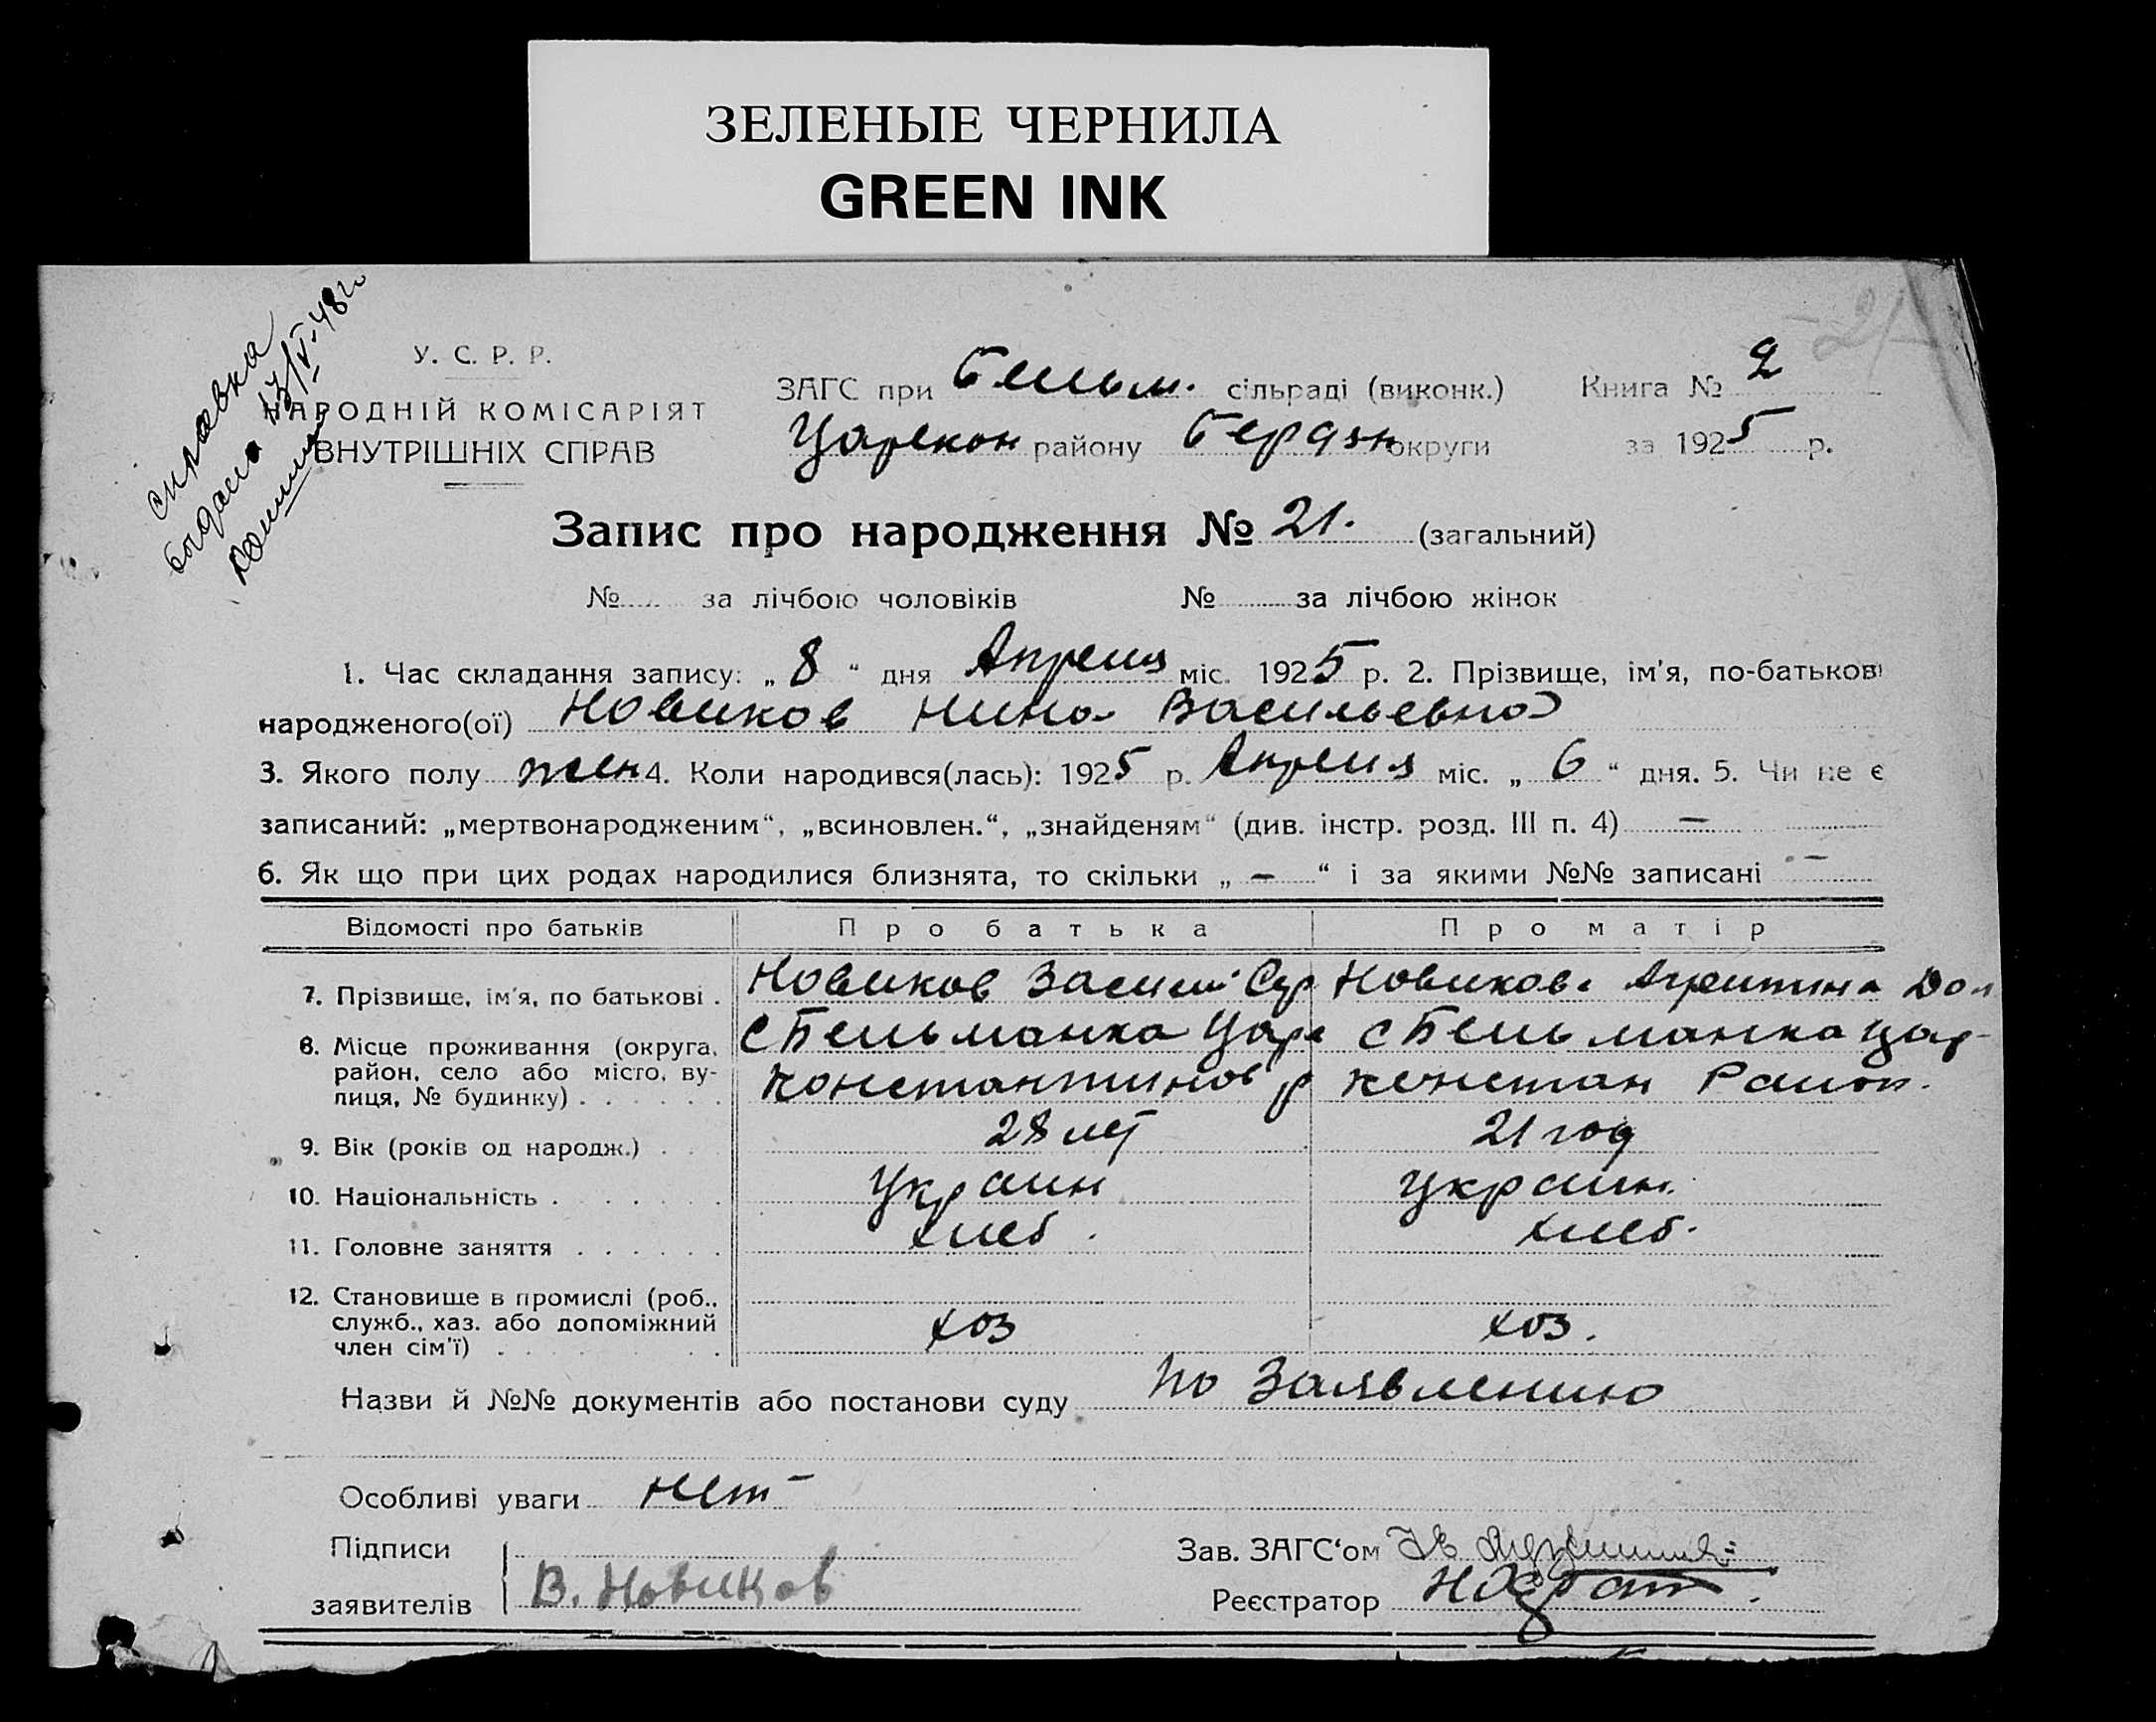 ЗЕЛЕНЫЕ ЧЕРНИЛА
GREEN INK
справка
выдана 13/V-48 г.
У. С. Р. Р.
НАРОДНІЙ КОМІСАРІЯТ
ВНУТРІШНІХ СПРАВ
ЗАГС при Бельм. сільраді (виконк.) Книга № 2
Царекон району Бердян округи за 1925 р.
Запис про народження № 21. (загальний)
№ за лічбою чоловіків № за лічбою жінок
1. Час складання запису: „ 8 “ дня Апреля міс. 1925 р. 2. Прізвище, ім'я, по-батькові
народженого(ої) Новиков Нина Васильевна
3. Якого полу жен 4. Коли народився(лась): 1925 р. Апреля міс. „ 6 “ дня. 5. Чи не є
записаний: „мертвонародженим“, „всиновлен.“, „знайденям“ (див. інстр. розд. III п. 4) —
6. Як що при цих родах народилися близнята, то скільки „ — “ і за якими №№ записані —
Відомості про батьків Про батька Про матір
7. Прізвище, ім'я, по батькові . Новиков Васили Новикова Дом
8. Місце проживання (округа, с Бельманка Царе с Бельманка Цар-
район, село або місто, ву- Константинов р Констан Район.
лиця, № будинку) . . . . . .
9. Вік (років од народж.) . . 28 лет 21 год
10. Національність . . . . . . . Украин Украин.
11. Головне заняття . . . . . . хлеб. хлеб.
12. Становище в промислі (роб.,
служб., хаз. або допоміжний хоз хоз.
член сім'ї) . . . . . . . .
Назви й №№ документів або постанови суду по Заявлению
Особливі уваги нет
Підписи Зав. ЗАГС‘ом
заявителів В. Новиков Реєстратор